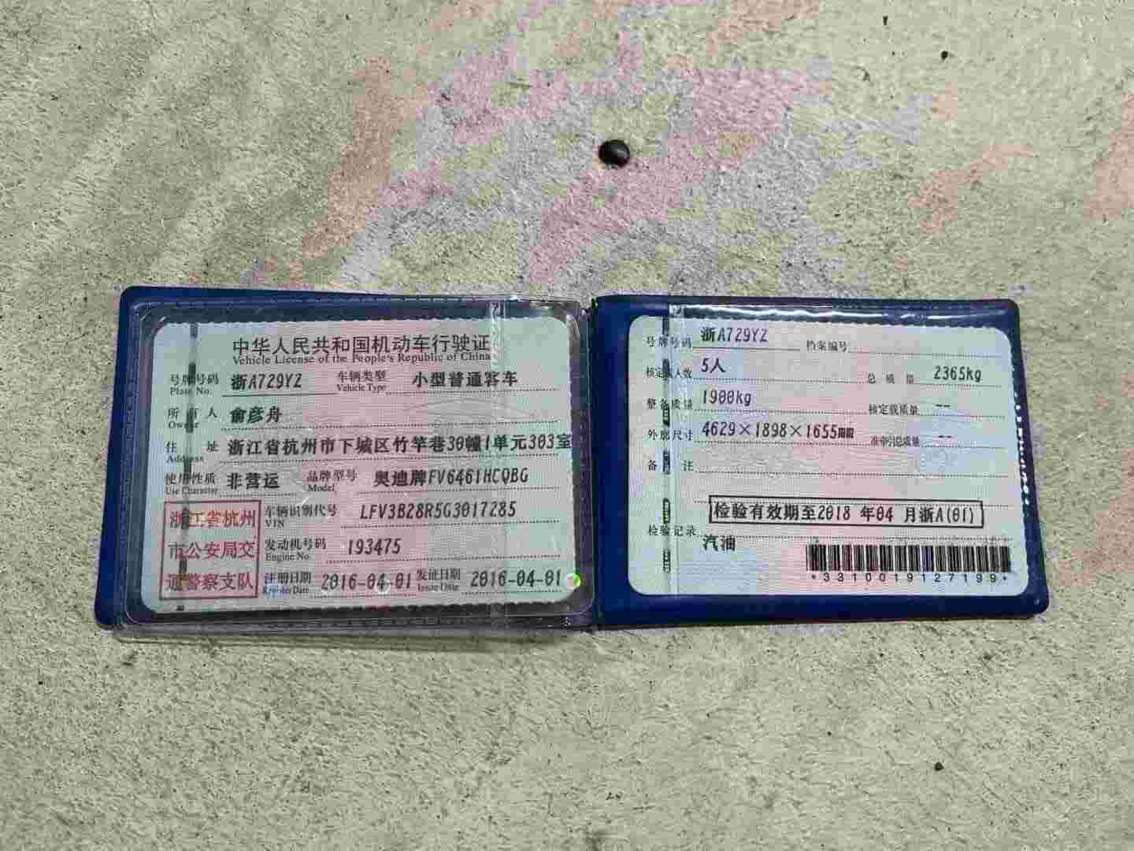 中华人民共和国机动车行驶证
Vehicle License of the People's Republic of China
号牌号码 浙A729YZ 车辆类型 小型普通客车
Plate No. Vehicle Type
所有人 俞彦舟
Owner
住址 浙江省杭州市下城区竹竿巷30幢1单元303室
Address
使用性质 非营运 品牌型号 奥迪牌FV6461HCQBG
Use Character Model
浙江省杭州
市公安局交
通警察支队
车辆识别代号 LFV3B28R5G3017285
VIN
发动机号码 193475
Engine No.
注册日期 2016-04-01 发证日期 2016-04-01
Register Date Issue Date
号牌号码 浙A729YZ 档案编号
核定载人数 5人 总质量 2365kg
整备质量 1900kg 核定载质量 --
外廓尺寸 4629×1898×1655mm 准牵引总质量 --
备注
检验有效期至2018 年04 月浙A(01)
检验记录
汽油
*3310019127199*